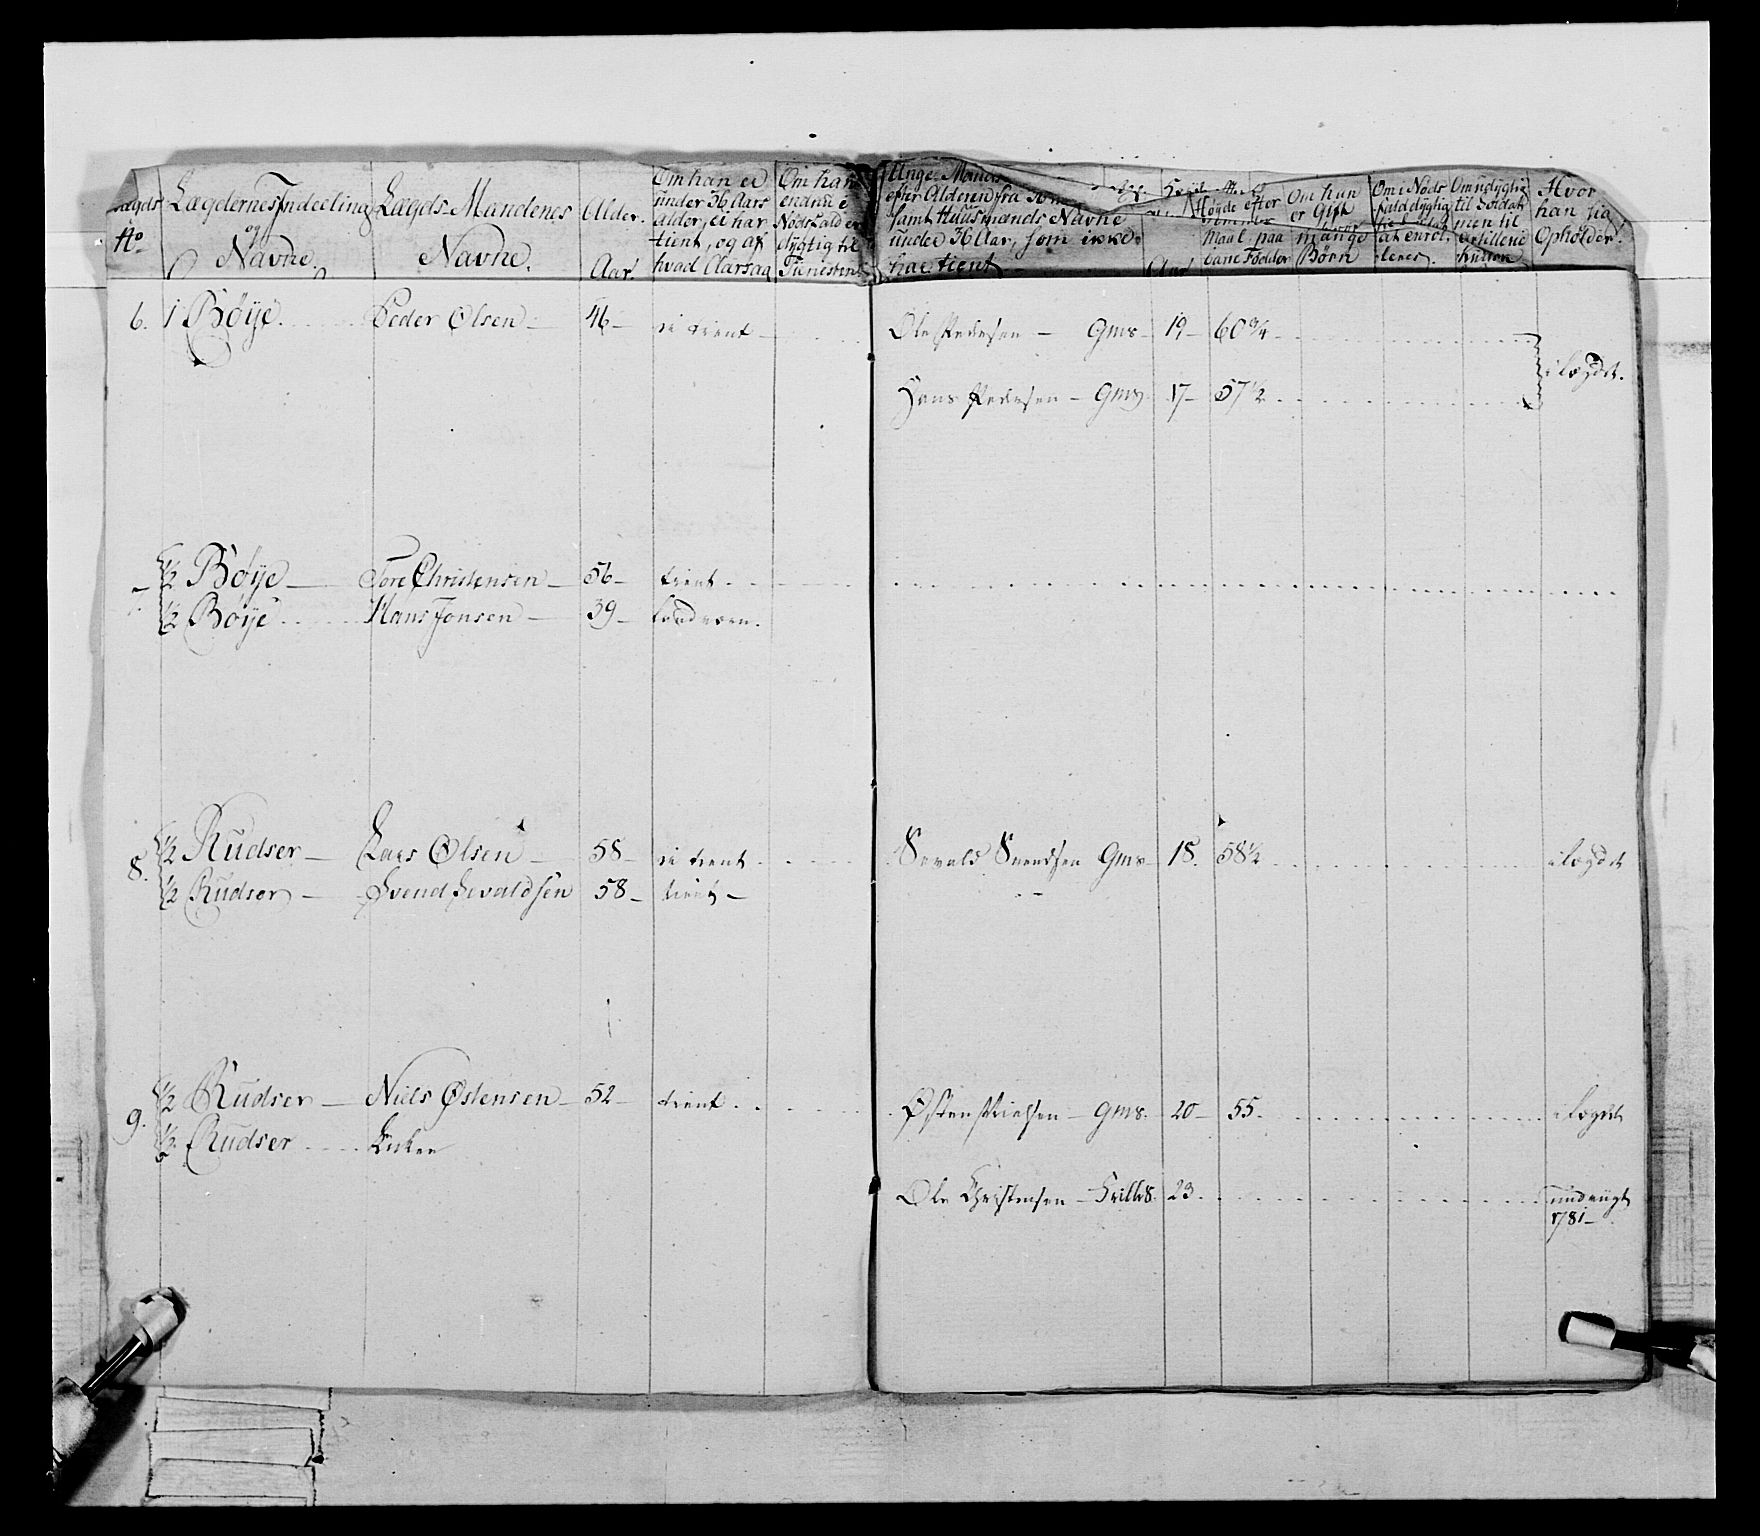 Lægds No
Lægdernes Indeeling og Navne.
Lægds-Mændenes Navne.
Alder. Aar.
Om han er under 36 Aars alder, ei har tient, og af hvad Aarsag
Om han endnu i Nødsfald er dygtig til Tienesten
Unge Mands
efter Alderen fra
samt Huusmænds Navne
under 36 Aar, som ikke
har tient
Høyde efter
Maal paa bare Fødder
Om han er Gift
mange Børn
Om i Nødsfald dygtig
at enrolleres.
Om udygtig til Soldat men til Artillerie
Hvor han sig Opholder.
6. 1 Bøÿe. Peder Olsen – 46 – ei tient – Ole Pedersen – Gms – 19 – 60 3/4
i Lægdet.
Hans Pedersen – Gms 17 – 57 1/2
1/2 Bøÿe – Tore Christensen – 56 – tient
1/2 Bøÿe Hans Jonsen – 39 – Landværn.
8. 1/2 Rudser – Lars Olsen – 58 – ei tient Sevald Svendsen Gms 18. 58 1/2 i Lægdet
1/2 Rudser – Svend Sevaldsen 58 – tient –
9. 1/2 Rudser – Niels Østensen – 52 – tient Østen Nielsen – Gms. 20 – 55. i Lægdet
1/2 Rudser Enken
Ole Christensen – 23.
1781 –